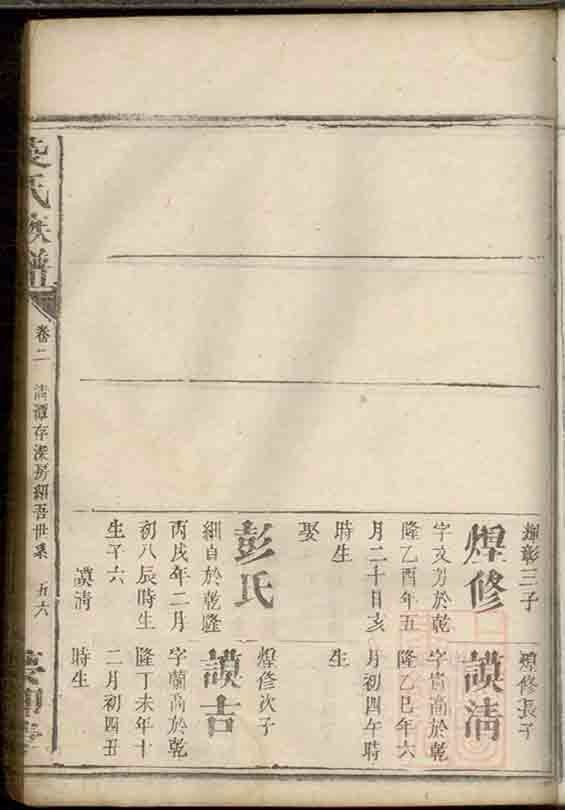 氏族譜
卷二
清潭存深房紹吾世系
五六
輝彰三子
煌修
字文芳於乾
隆乙酉年五
月二十日亥
時生
娶
彭氏
細自於乾隆
丙戌年二月
初八辰時生
生子六
謨清
煌修長子
謨清
字資高於乾
隆乙巳年六
月初四午時
生
煌修次子
謨吉
字蘭高於乾
隆丁未年十
二月初四丑
時生